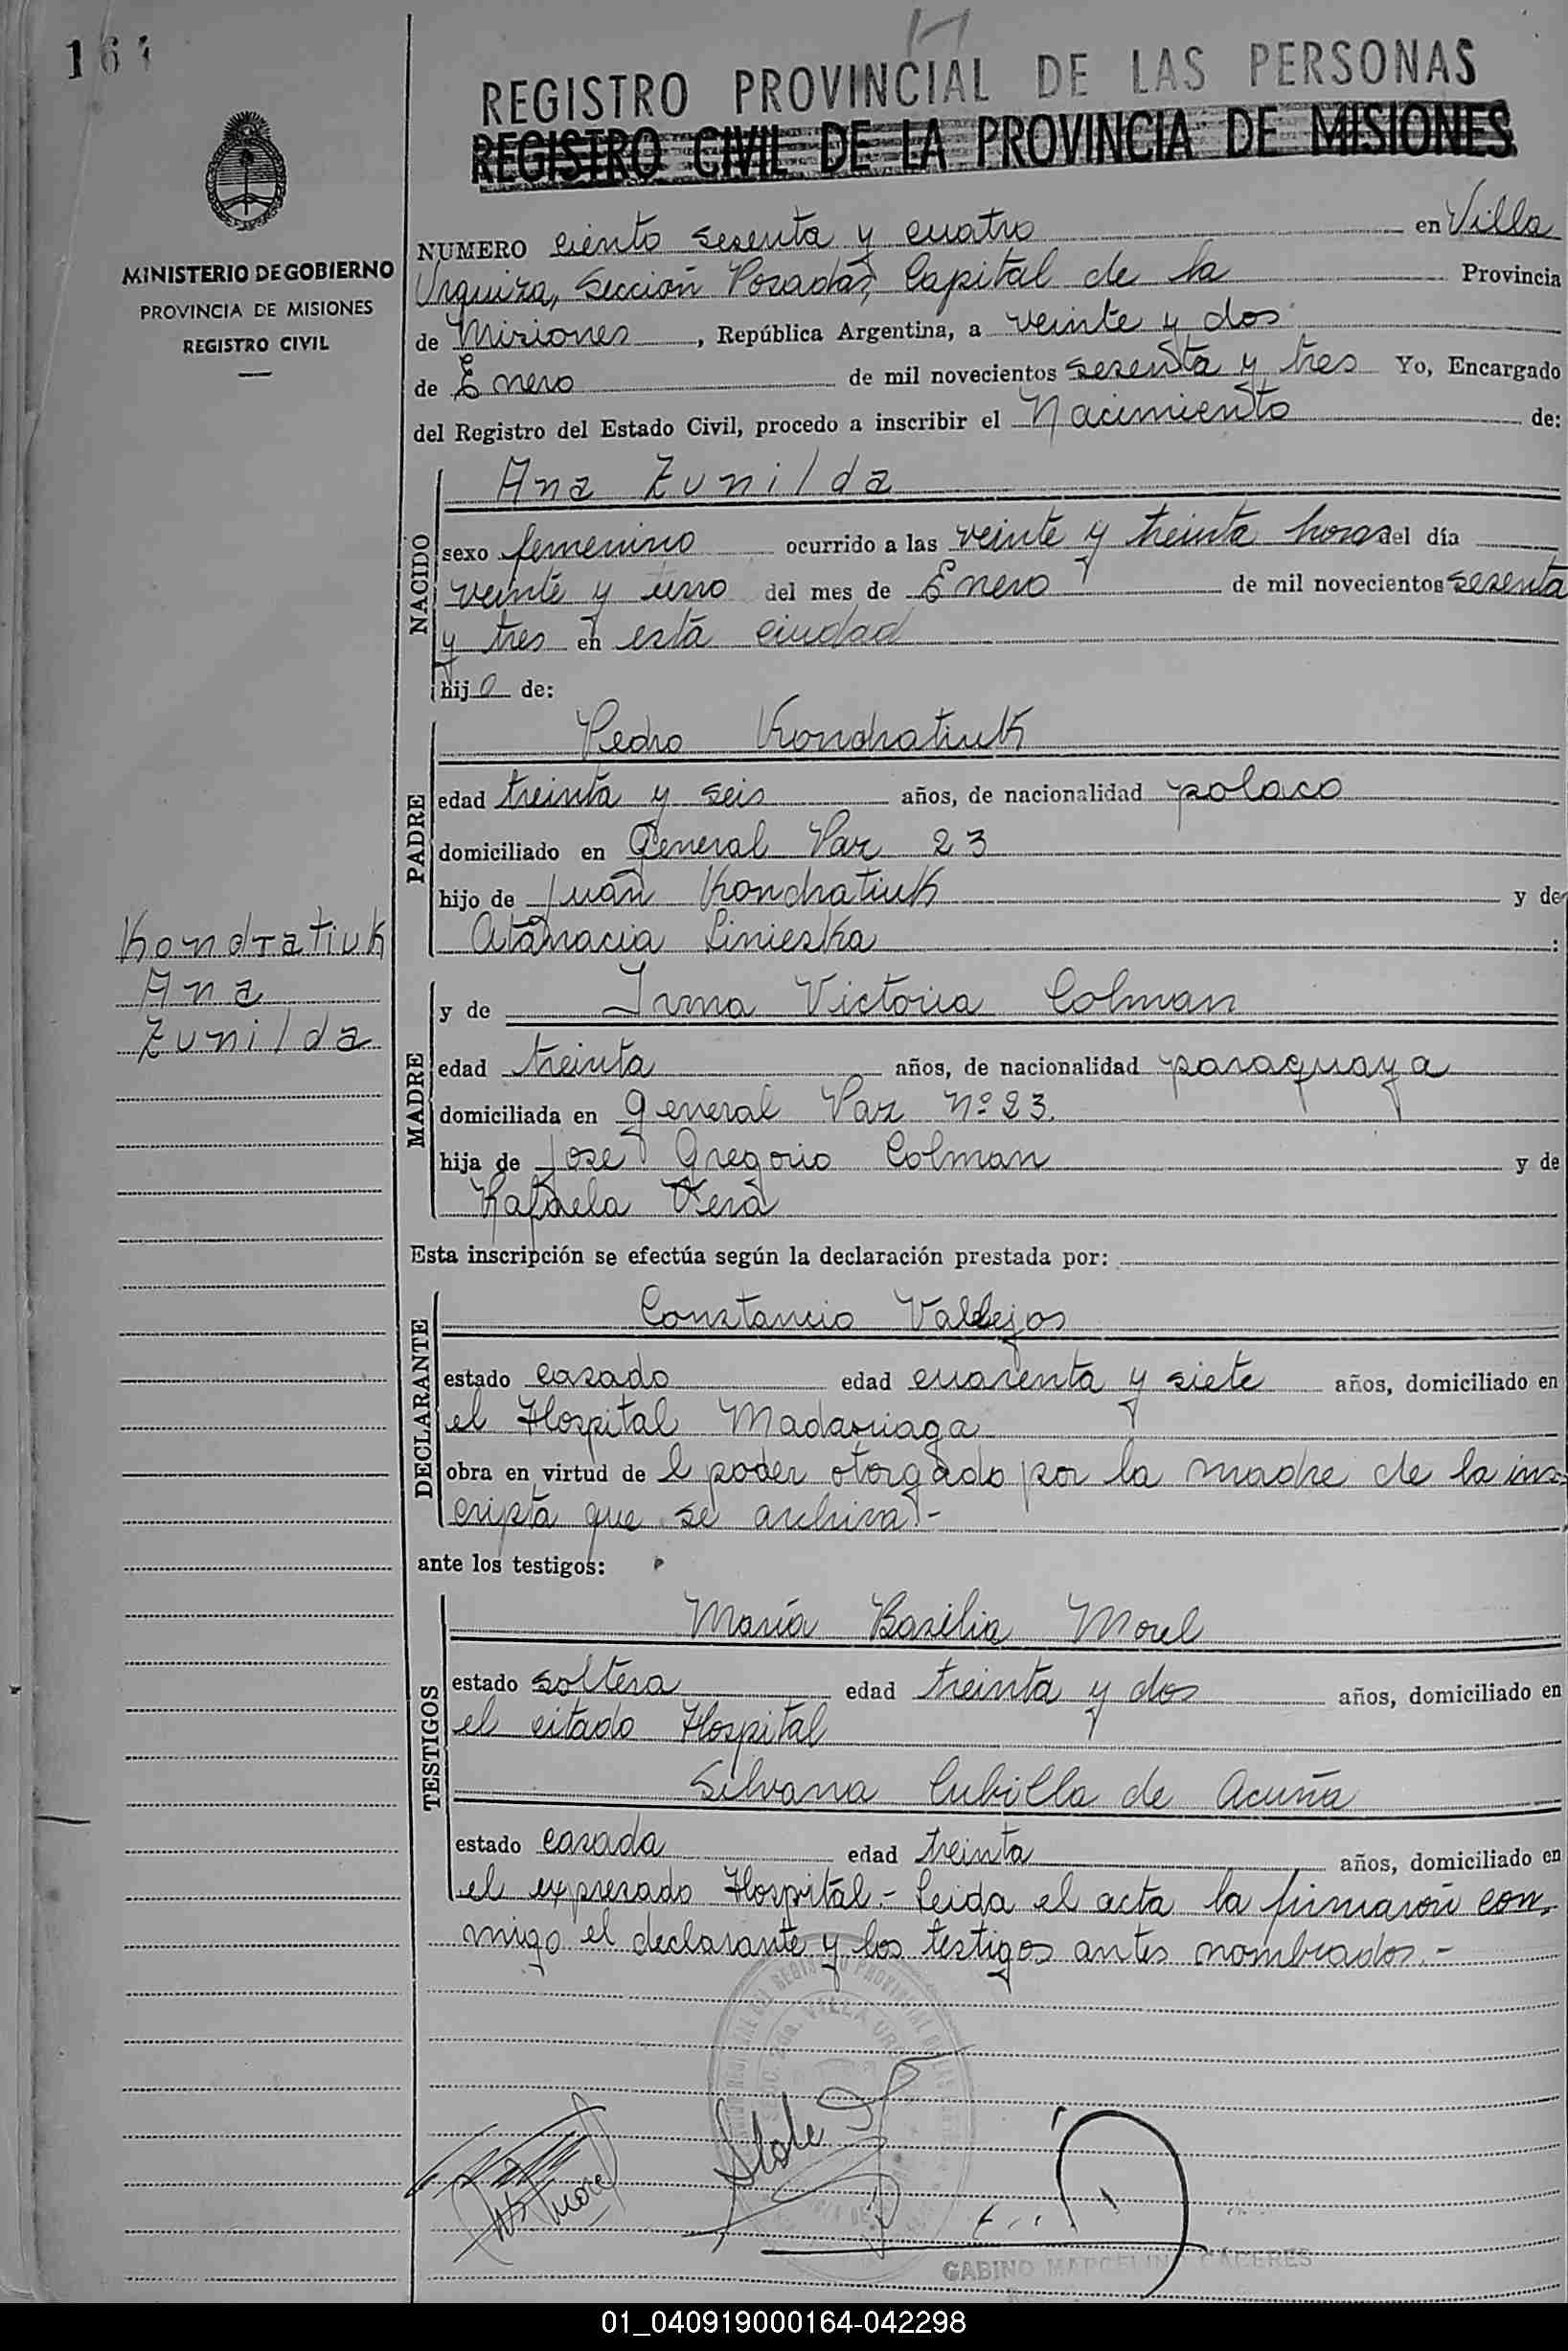 164
REGISTRO PROVINCIAL DE LAS PERSONAS
REGISTRO CIVIL DE LA PROVINCIA DE MISIONES
MINISTERIO DE GOBIERNO
PROVINCIA DE MISIONES
REGISTRO CIVIL
NUMERO ciento sesenta y cuatro en Villa
Urquiza, Sección Posadas, Capital de la Provincia
de Misiones, República Argentina, a veinte y dos
de Enero de mil novecientos sesenta y tres Yo, Encargado
del Registro del Estado Civil, procedo a inscribir el Nacimiento de:
NACIDO
Ana Zunilda
sexo femenino ocurrido a las veinte y treinta horas del día
veinte y uno del mes de Enero de mil novecientos sesenta
y tres en esta ciudad
hija de:
PADRE
Pedro Kondratiuk
edad treinta y seis años, de nacionalidad polaco
domiciliado en General Paz 23
hijo de Juan Kondratiuk y de
Atanacia Linieska :
Kondratiuk
Ana
Zunilda
MADRE
y de Irma Victoria Colman
edad treinta años, de nacionalidad paraguaya
domiciliada en General Paz Nº 23.
hija de José Gregorio Colman y de
Rafaela Vera
Esta inscripción se efectúa según la declaración prestada por:
DECLARANTE
Constancio Vallejos
estado casado edad cuarenta y siete años, domiciliado en
el Hospital Madariaga
obra en virtud de l poder otorgado por la madre de la ins-
cripta que se archiva.-
ante los testigos:
TESTIGOS
María Basilia Morel
estado soltera edad treinta y dos años, domiciliado en
el citado Hospital
Silvana Cubilla de Acuña
estado casada edad treinta años, domiciliado en
el expresado Hospital.- Leida el acta la firmaron con-
migo el declarante y los testigos antes nombrados.-
GABINO MARCELINO CACERES
01_040919000164-042298